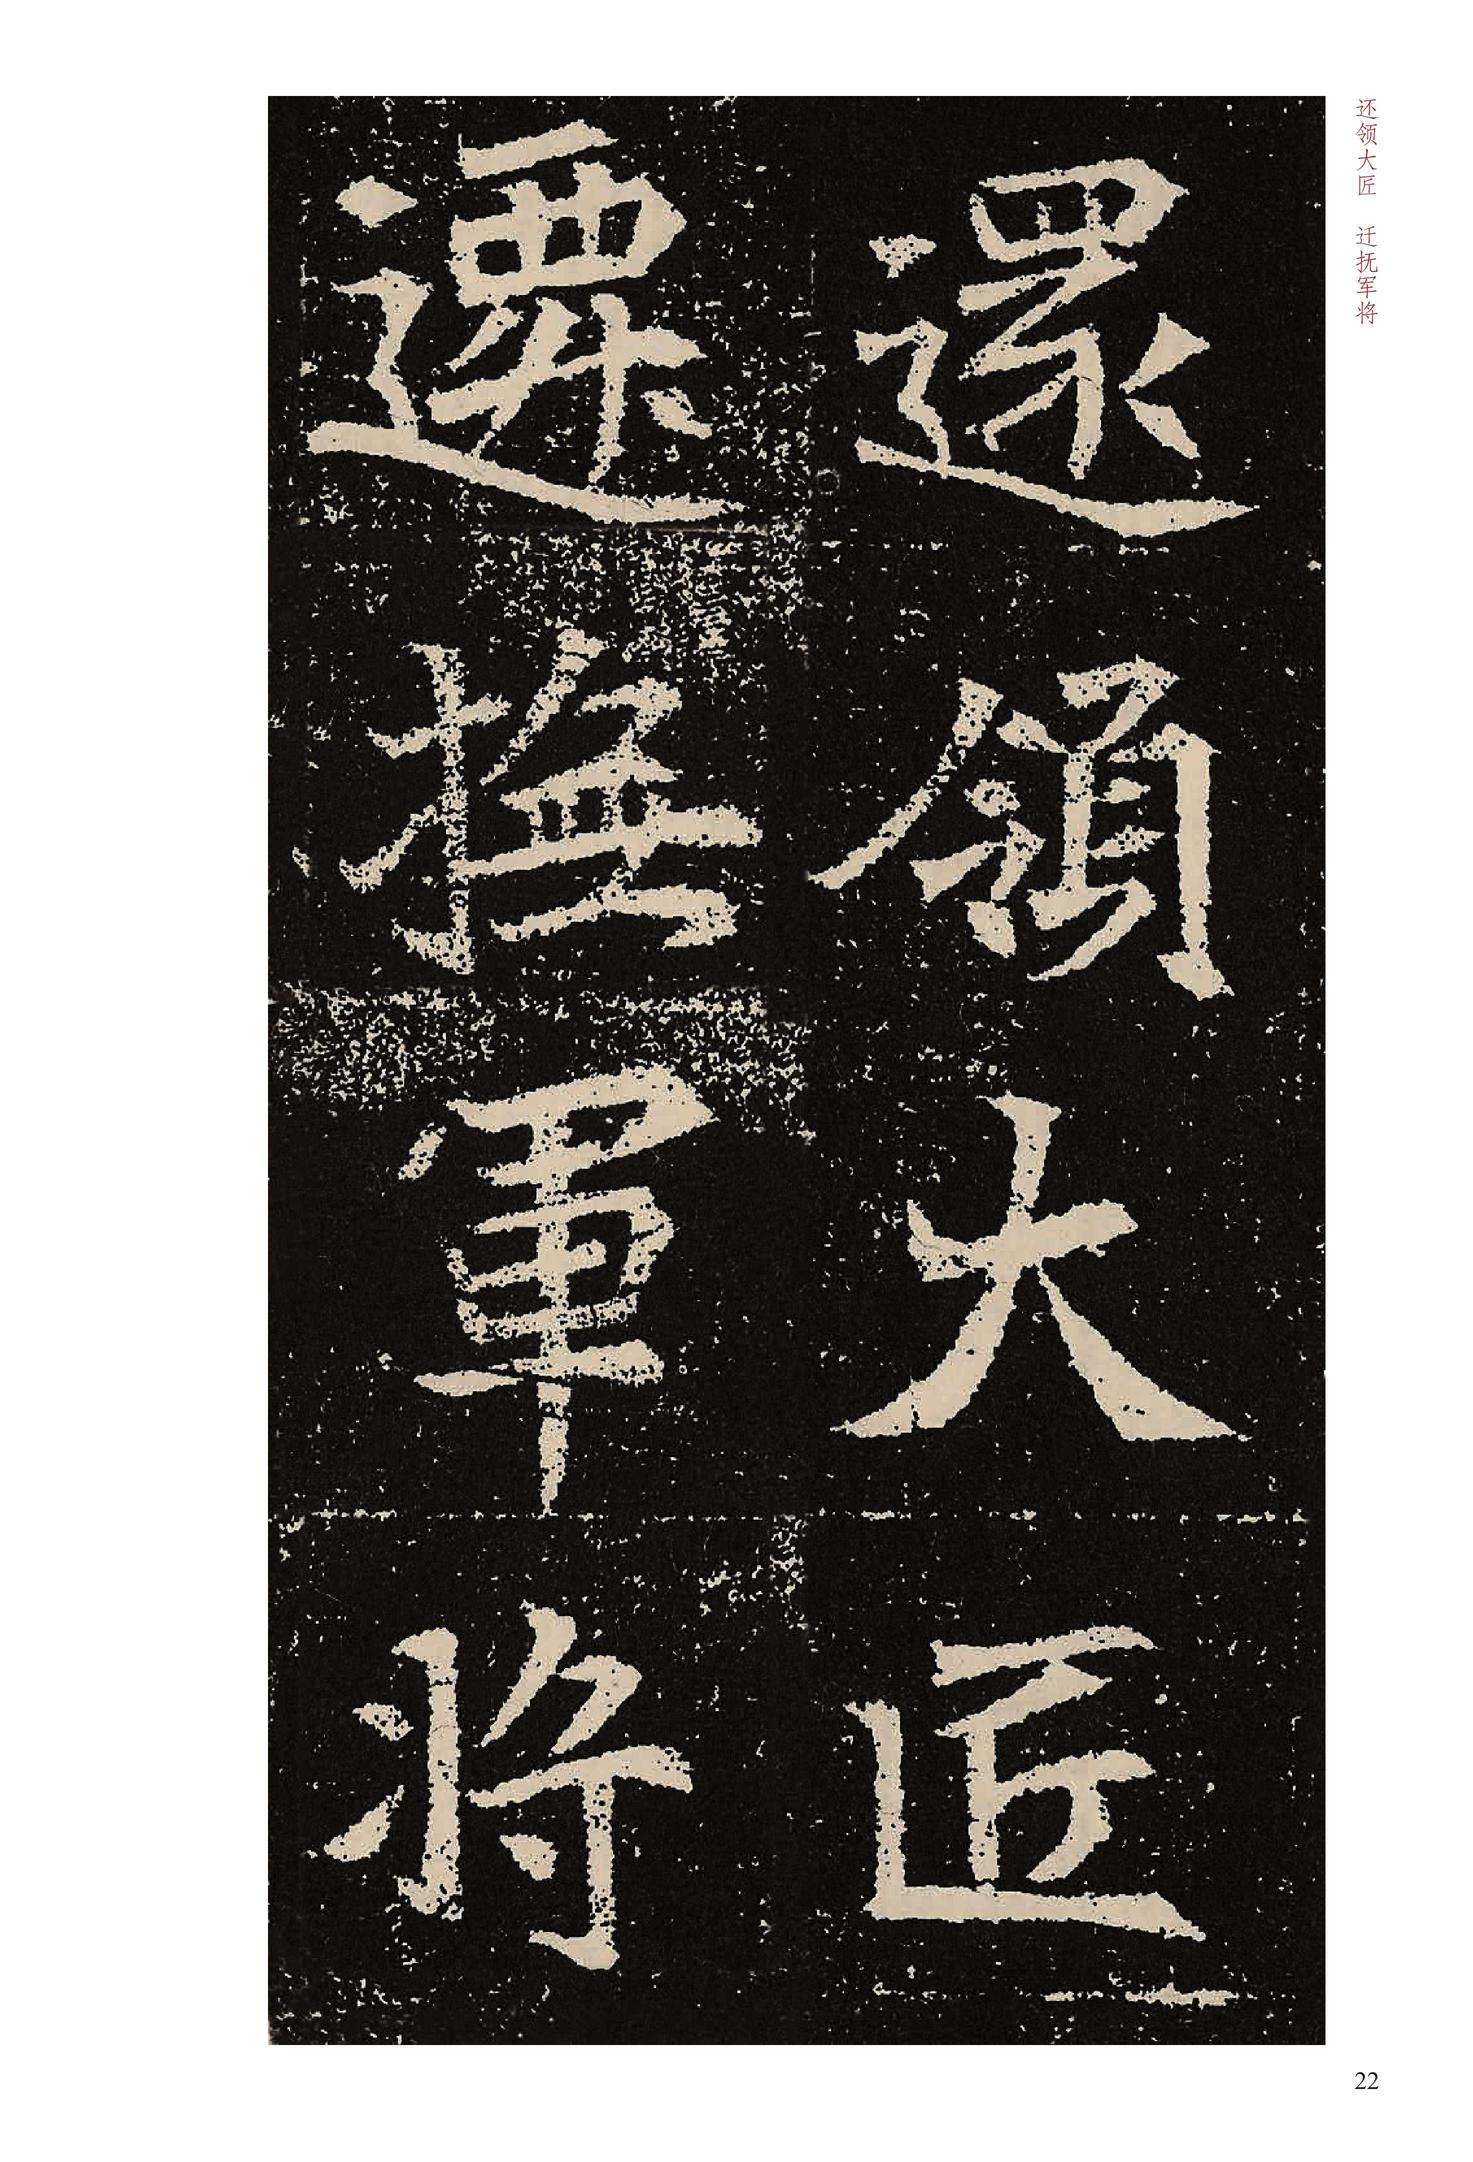 还领大匠 迁抚军将
還領大匠
遷撫軍將
22